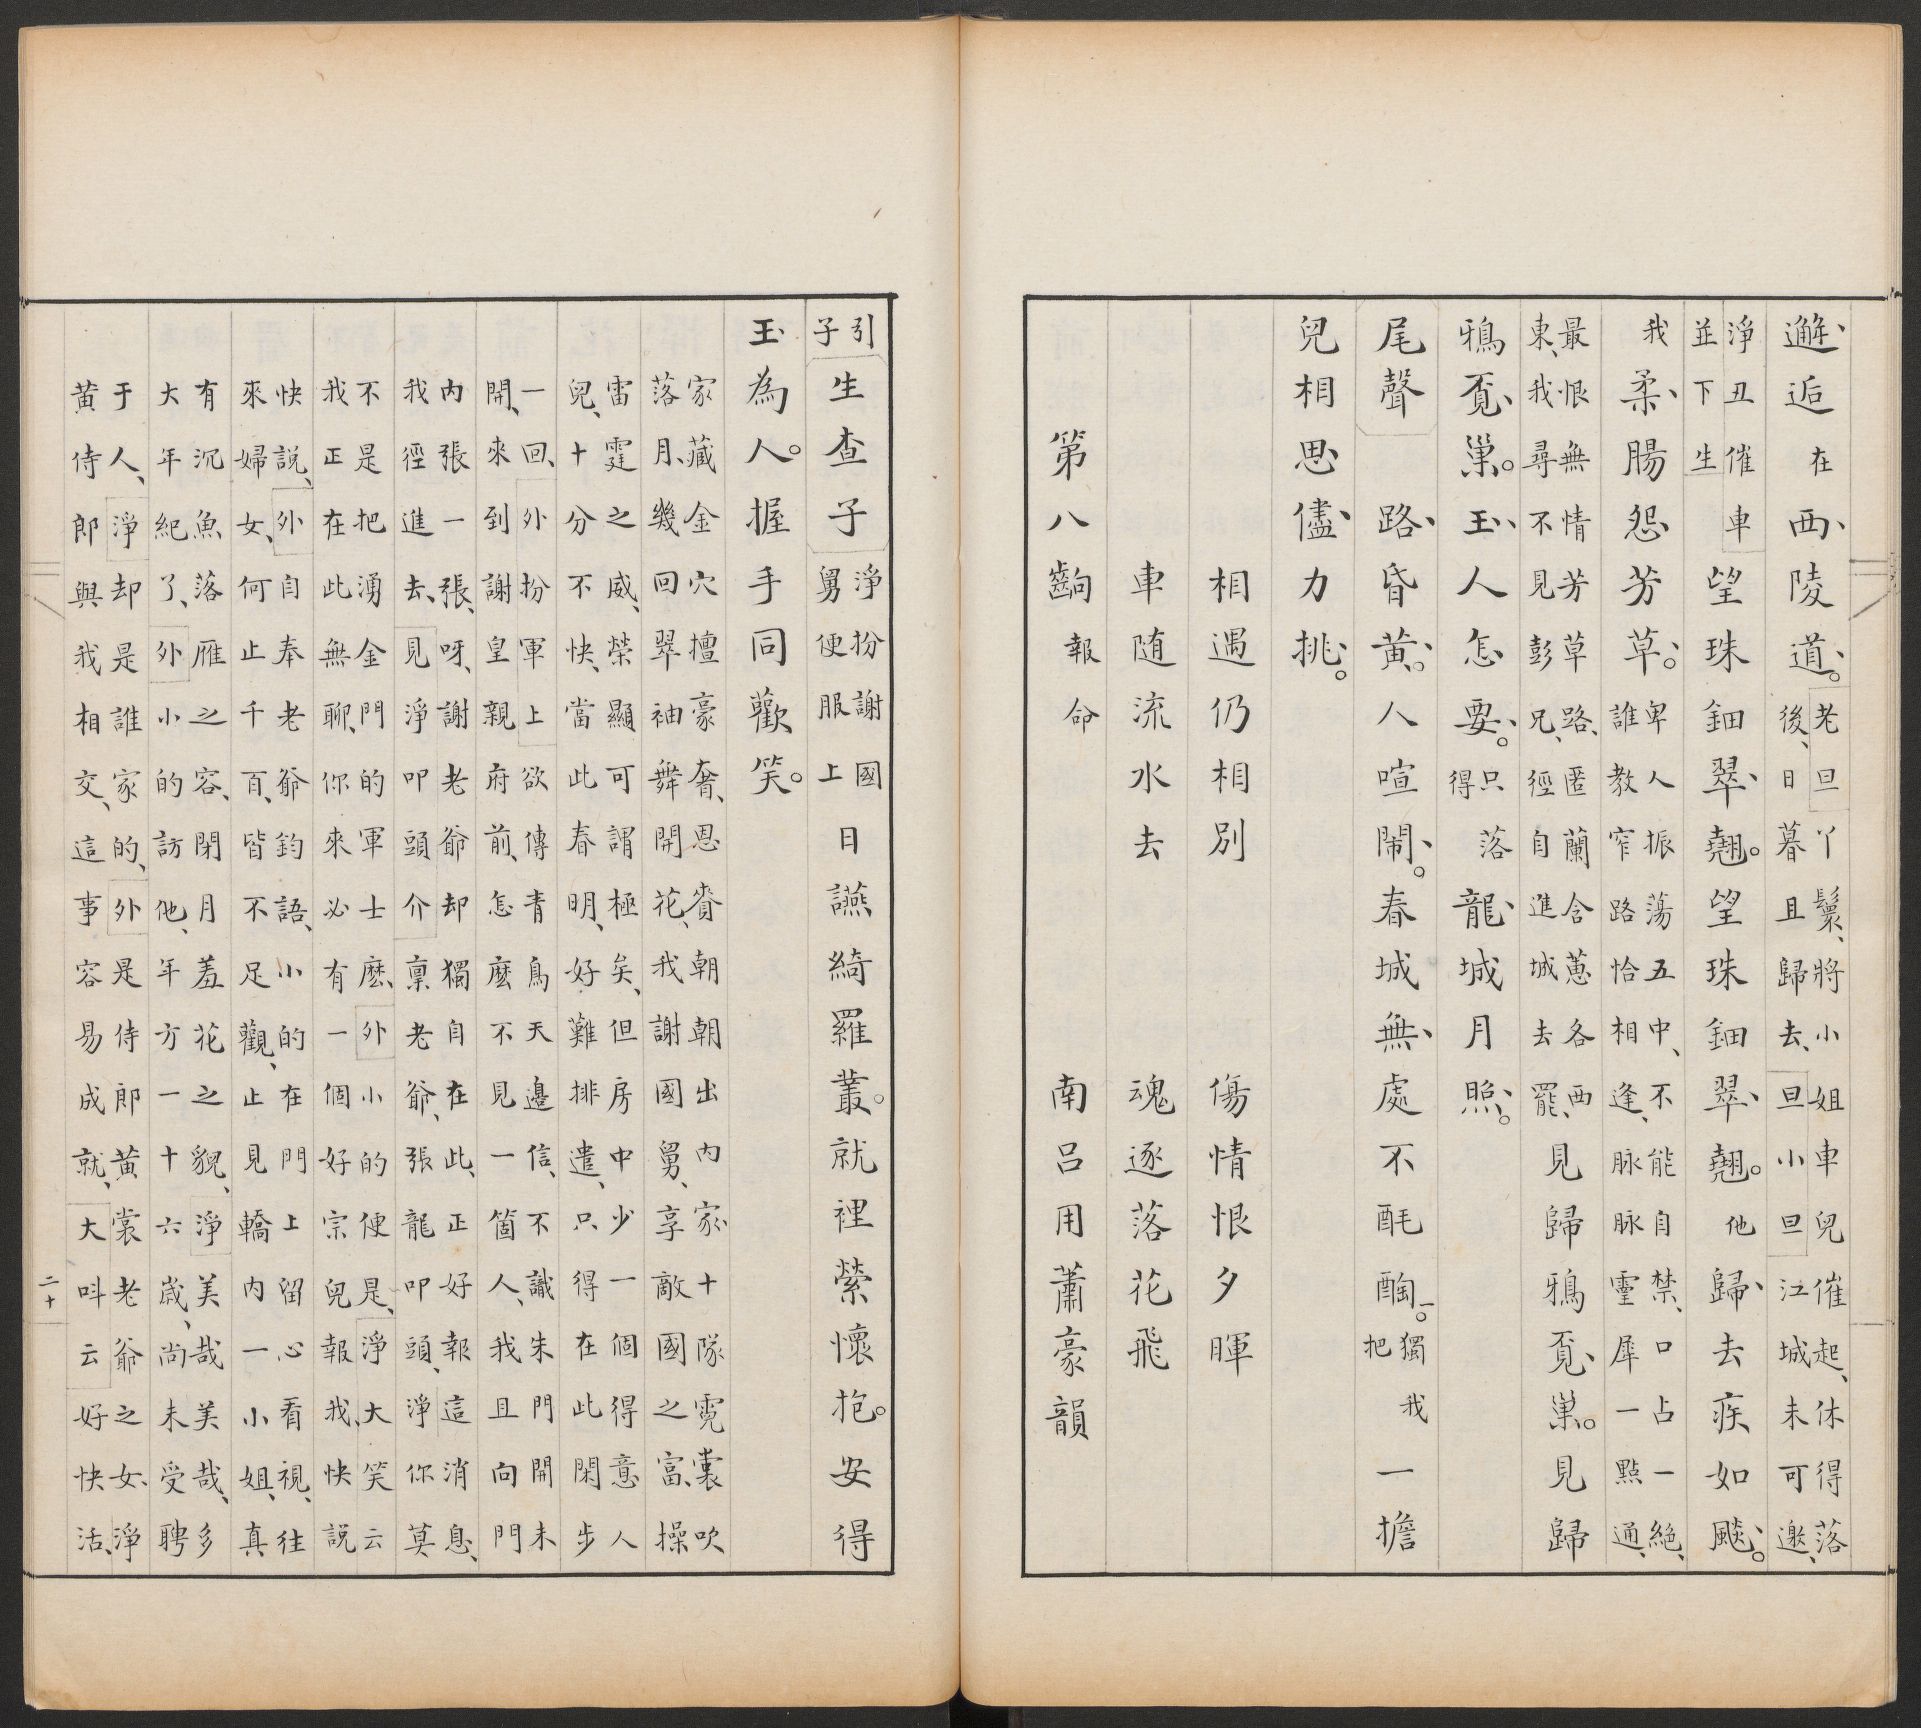 邂逅在西陵道。老旦後、日暮且歸去、旦小旦江城未可邀、丫鬟、將小姐車兒催起、休得落
淨丑催車並下生生望珠鈿翠翹。望珠鈿翠翹。他歸去疾如飈。
我柔腸怨芳草。卑人振蕩五中、不能自禁、口占一絕、誰教窄路恰相逢、脉脉靈犀一點通、
最恨無情芳草路、匿蘭含蕙各西東、我尋不見彭兄、徑自進城去罷、見歸鴉覓巢。見歸
鴉覓巢。玉人怎要。只得落龍城月照。
尾聲路昏黃。人喧鬧。春城無處不酕醄。獨把我一擔
兒相思儘力挑。
相遇仍相別 傷情恨夕暉
車随流水去 魂逐落花飛
第八齣報命 南呂用蕭豪韻
引子生查子淨扮謝國舅便服上日讌綺羅叢。就裡縈懷抱。安得
玉為人。握手同歡笑。
家藏金穴擅豪奢、恩賚朝朝出內家、十隊霓裳吹落月、幾回翠袖舞開花、我謝國舅、享敵國之富、操
雷霆之威、榮顯可謂極矣、但房中少一個得意人兒、十分不快、當此春明、好難排遣、只得在此閑步
一回、外扮軍上欲傳青鳥天邊信、不識朱門開未開、來到謝皇親府前、怎麽不見一箇人、我且向門
內張一張、呀、謝老爺却獨自在此、正好報這消息、我徑進去、見淨叩頭介稟老爺、張龍叩頭、淨你莫
不是把湧金門的軍士麽、外小的便是、淨大笑云我正在此無聊、你來必有一個好宗兒報我、快說
快說、外自奉老爺鈞語、小的在門上留心看視、往來婦女、何止千百、皆不足觀、止見轎內一小姐、真
有沉魚落雁之容、閉月羞花之貌、淨美哉美哉、多大年紀了、外小的訪他、年方一十六歲、尚未受聘
于人、淨却是誰家的、外是侍郎黃裳老爺之女、淨黃侍郎與我相交、這事容易成就、大呌云好快活、
二十